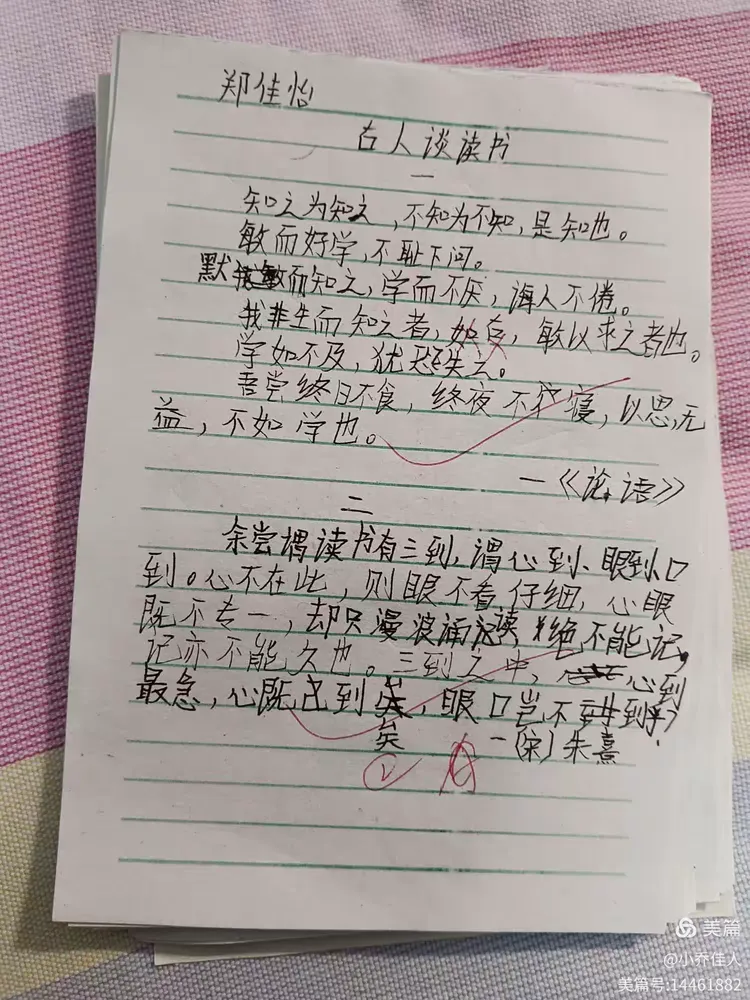 郑佳怡
古人谈读书
一
知之为知之，不知为不知，是知也。
敏而好学，不耻下问。
默而知之，学而不厌，诲人不倦。
我非生而知之者，好古，敏以求之者也。
学如不及，犹恐失之。
吾尝终日不食，终夜不寝，以思，无
益，不如学也。
一《论语》
二
余尝谓读书有三到，谓心到、眼到、口
到。心不在此，则眼不看仔细，心眼
既不专一，却只漫浪诵读，绝不能记，
记亦不能久也。三到之中，心到
最急，心既已到矣，眼口岂不到乎？
矣
一(宋)朱熹
美篇
@小乔佳人
美篇号:14461882